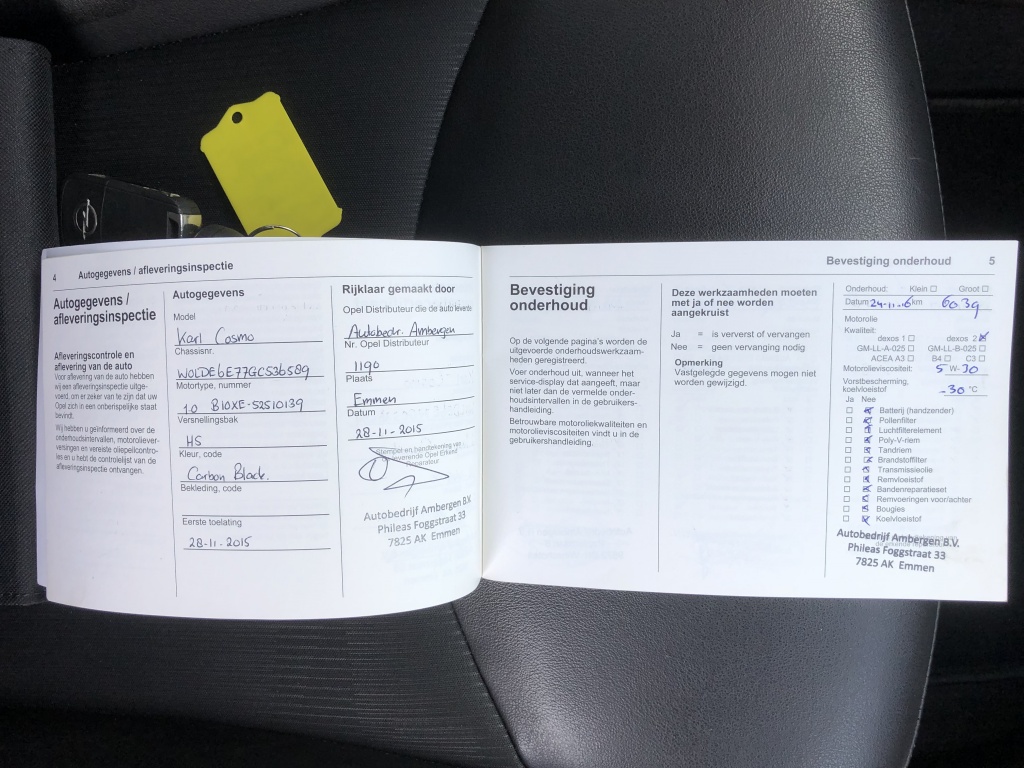 4 Autogegevens / afleveringsinspectie
Autogegevens /
afleveringsinspectie
Afleveringscontrole en
aflevering van de auto
Voor aflevering van de auto hebben
wij een afleveringsinspectie uitge-
voerd, om er zeker van te zijn dat uw
Opel zich in een onberispelijke staat
bevindt.
Wij hebben u geïnformeerd over de
onderhoudsintervallen, motoroliever-
versingen en vereiste oliepeilcontro-
les en u hebt de controlelijst van de
afleveringsinspectie ontvangen.
Autogegevens
Model
Karl Cosmo
Chassisnr.
W0LDE6E77GC536589
Motortype, nummer
1.0 B10XE-52510139
Versnellingsbak
H5
Kleur, code
Carbon Black.
Bekleding, code
Eerste toelating
28-11-2015
Rijklaar gemaakt door
Opel Distributeur die de auto leverde
Autobedr. Ambergen
Nr. Opel Distributeur
1190
Plaats
Emmen
Datum
28-11-2015
Stempel en handtekening van
leverende Opel Erkend
Reparateur
Autobedrijf Ambergen B.V.
Phileas Foggstraat 33
7825 AK Emmen
Bevestiging onderhoud 5
Bevestiging
onderhoud
Op de volgende pagina's worden de
uitgevoerde onderhoudswerkzaam-
heden geregistreerd.
Voer onderhoud uit, wanneer het
service-display dat aangeeft, maar
niet later dan de vermelde onder-
houdsintervallen in de gebruikers-
handleiding.
Betrouwbare motoroliekwaliteiten en
motorolieviscositeiten vindt u in de
gebruikershandleiding.
Deze werkzaamheden moeten
met ja of nee worden
aangekruist
Ja = is ververst of vervangen
Nee = geen vervanging nodig
Opmerking
Vastgelegde gegevens mogen niet
worden gewijzigd.
Onderhoud: Klein Groot
Datum 24-11-16 km 6039
Motorolie
Kwaliteit:
dexos 1 dexos 2
GM-LL-A-025 GM-LL-B-025
ACEA A3 B4 C3
Motorolieviscositeit: 5 W- 30
Vorstbescherming,
koelvloeistof -30 °C
Ja Nee
Batterij (handzender)
Pollenfilter
Luchtfilterelement
Poly-V-riem
Tandriem
Brandstoffilter
Transmissieolie
Remvloeistof
Bandenreparatieset
Remvoeringen voor/achter
Bougies
Koelvloeistof
Autobedrijf Ambergen B.V.
Phileas Foggstraat 33
7825 AK Emmen